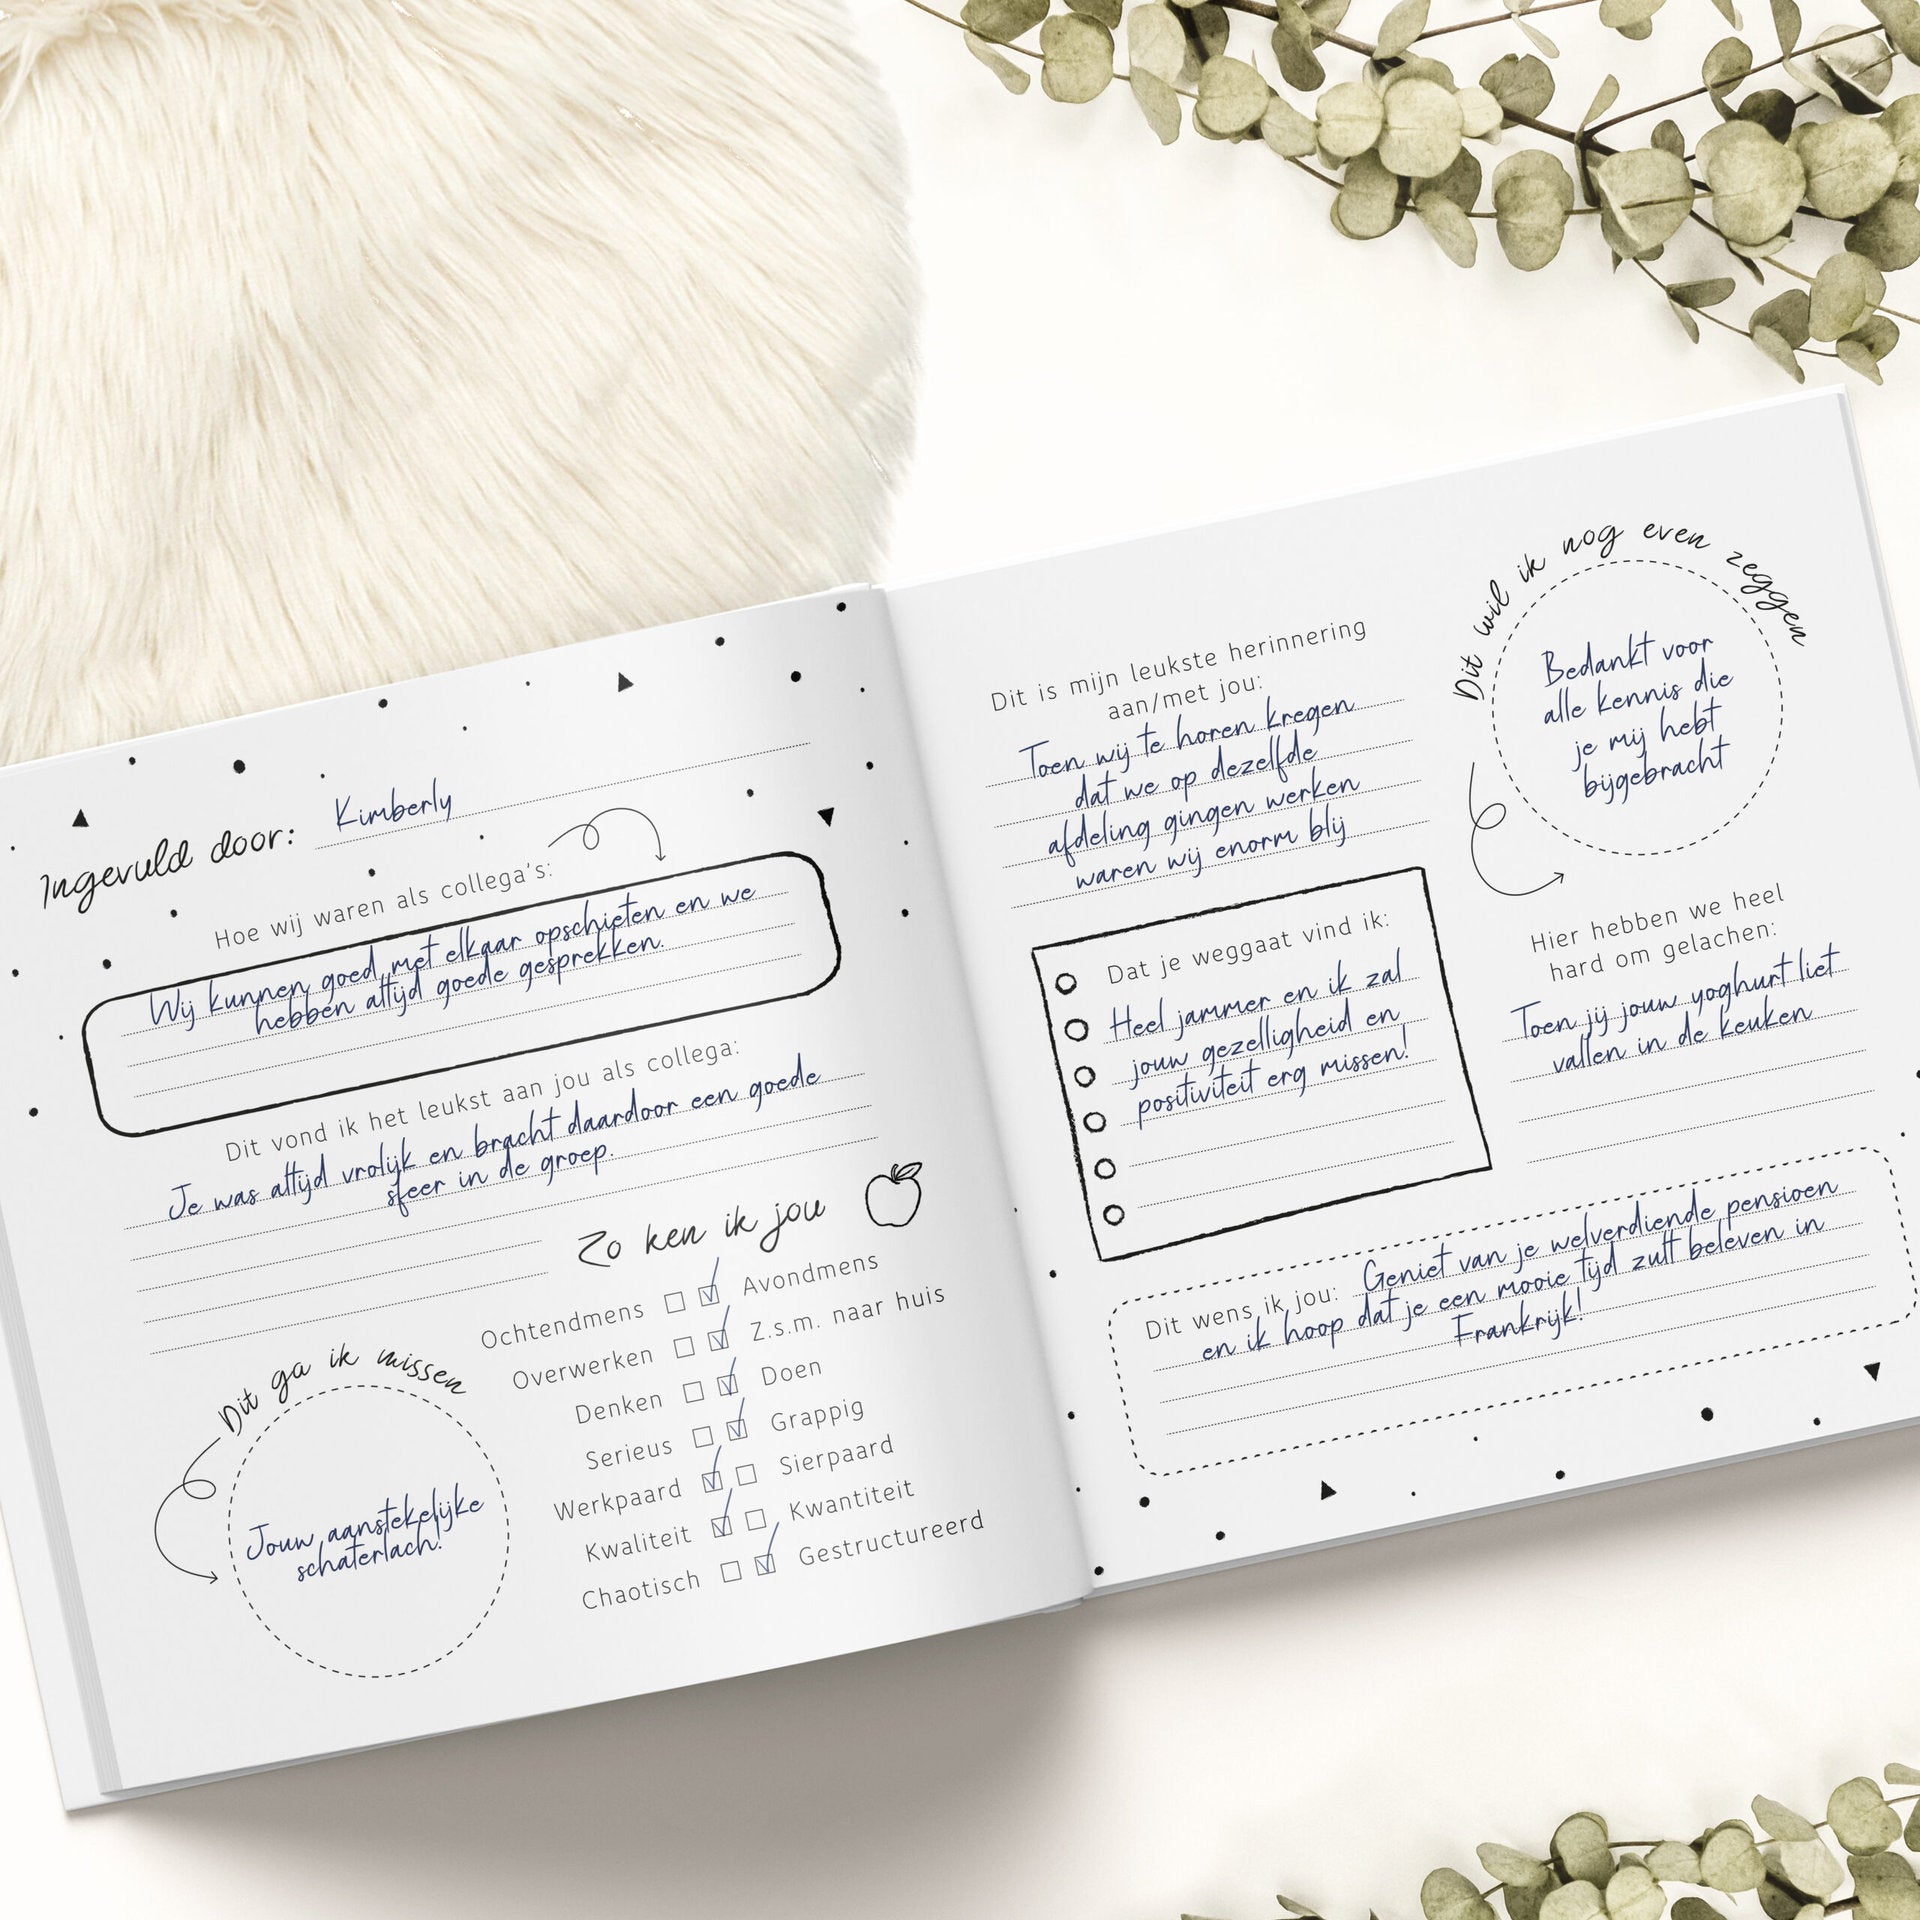 Ingevuld door: Kimberly
Hoe wij waren als collega's:
Wij kunnen goed met elkaar opschieten en we
hebben altijd goede gesprekken.
Dit vond ik het leukst aan jou als collega:
Je was altijd vrolijk en bracht daardoor een goede
sfeer in de groep.
Zo ken ik jou
Ochtendmens Avondmens
Overwerken Z.s.m. naar huis
Denken Doen
Serieus Grappig
Werkpaard Sierpaard
Kwaliteit Kwantiteit
Chaotisch Gestructureerd
Dit ga ik missen
Jouw aanstekelijke
schaterlach!
Dit is mijn leukste herinnering
aan/met jou:
Toen wij te horen kregen
dat we op dezelfde
afdeling gingen werken
waren wij enorm blij
Dit wil ik nog even zeggen
Bedankt voor
alle kennis die
je mij hebt
bijgebracht
Dat je weggaat vind ik:
Heel jammer en ik zal
jouw gezelligheid en
positiviteit erg missen!
Hier hebben we heel
hard om gelachen:
Toen jij jouw yoghurt liet
vallen in de keuken
Dit wens ik jou: Geniet van je welverdiende pensioen
en ik hoop dat je een mooie tijd zult beleven in
Frankrijk!